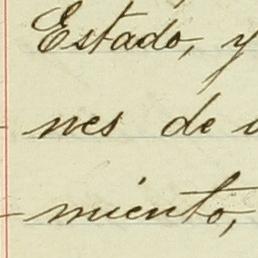 Estado, y
nes de
miento,